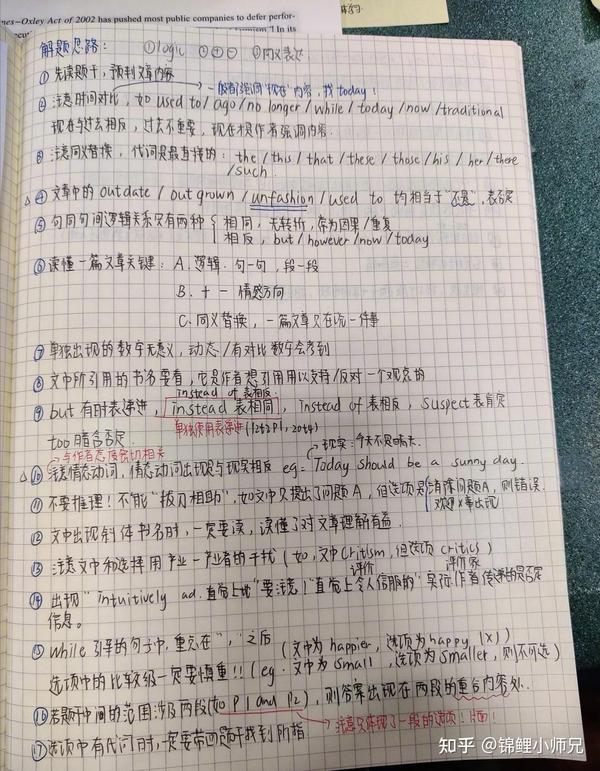 nes–Oxley Act of 2002 has pushed most public companies to defer perfor-
In its
解题思路: ①logic ②⊕⊖ ③同义表达
① 先读题干,预判文章内容
一般都强调"现在"内容,找today!
② 注意时间对比,如 used to/ago/no longer/while/today/now/traditional
现在与过去相反,过去不重要,现在才是作者强调内容.
③ 注意同义替换,代词是最直接的: the/this/that/these/those/his/her/there
/such.
△④ 文章中的 outdate/outgrown/unfashion/used to 均相当于"不是",表否定
⑤ 句间句间逻辑关系只有两种 相同,无转折,常为因果/重复
相反,but/however/now/today
⑥ 读懂一篇文章关键: A.逻辑.句一句,段一段
B. 十一 情感方向
C.同义替换,一篇文章只在说一件事
⑦ 单独出现的数字无意义,动态/有对比数字会考到
⑧ 文中所引用的书名要看,它是作者想引用用以支持/反对一个观点的
instead of 表相反
⑨ but 有时表递进, instead 表相同, instead of 表相反, suspect 表肯定
单独使用表递进
too 暗含否定.
与作者态度密切相关
现实:今天不是晴天.
△⑩ 注意情态动词,情态动词出现是与现实相反 eg= Today should be a sunny day.
⑪ 不要推理!不能"拔刀相助",如文中只提出了问题A,但选项是有解决问题A,则错误.
⑫ 文中出现斜体书名时,一定要读,读懂了对文章理解有益.
⑬ 注意文中和选择用产业一产业者的干扰(如,文中Critism,但选项 critics)
评价 评价家
⑭ 出现"Intuitively ad.直觉上地"要注意!"直觉上令人信服的"实际作者传递的是否定
信息。
⑮ While引导的句子中,重点在","之后 (文中为happier,选项为happy (×))
选项中的比较级一定要慎重!!(eg.文中为 small,选项为 smaller,则不可选)
⑯ 若题干中间的范围涉及两段(如 P1 and P2),则答案出现在两段的重合内容处.
注意只体现了一段的选项!片面!
⑰ 选项中有代词时,一定要带回题干找到所指
知乎 @锦鲤小师兄